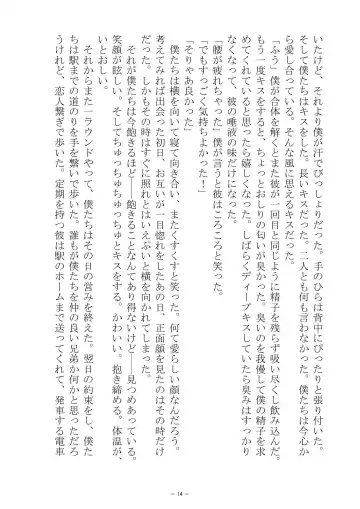 いたけど、それより僕が汗でびっしょりだった。手のひらは背中にぴったりと張り付いた。
そして僕たちはキスをした。長いキスだった。二人とも何も言わなかった。僕たちは今心か
ら愛し合っている。そんな風に思えるキスだった。
「ふう」僕が合体を解くとまた彼が一回目と同じように精子を残らず吸い尽くし飲み込んだ。
もう一度キスをすると、ちょっとおしりの匂いが臭かった。臭いのを我慢して僕の精子を求
めてくれていると思ったら嬉しくなった。しばらくディープキスしていたら臭みはすっかり
なくなって、彼の唾液の味だけになった。
「腰が疲れちゃった」僕が言うと彼はころころと笑った。
「でもすっごく気持ちよかった！」
「そりゃあ良かった」
僕たちは横を向いて寝て向き合い、またくすくすと笑った。何て愛らしい顔なんだろう。
考えてみれば出会った初日、お互いが一目惚れをしたあの日、正面顔を見たのはその時だけ
だった。しかもその時はすぐに照れとはいえぷいと横を向かれてしまった。
それが僕たちは今飽きるほど――飽きることなんてあり得ないけど――見つめあっている。
笑顔が眩しい。そしてちゅっちゅちゅっちゅとキスをする。かわいい。抱き締める。体温が、
いとおしい。
それからまた一ラウンドやって、僕たちはその日の営みを終えた。翌日の約束をし、僕た
ちは駅までの道のりを手を繋いで歩いた。誰もが僕たちを仲の良い兄弟か何かと思っただろ
うけれど、恋人繋ぎで歩いた。定期を持つ彼は駅のホームまで送ってくれて、発車する電車
- 14 -